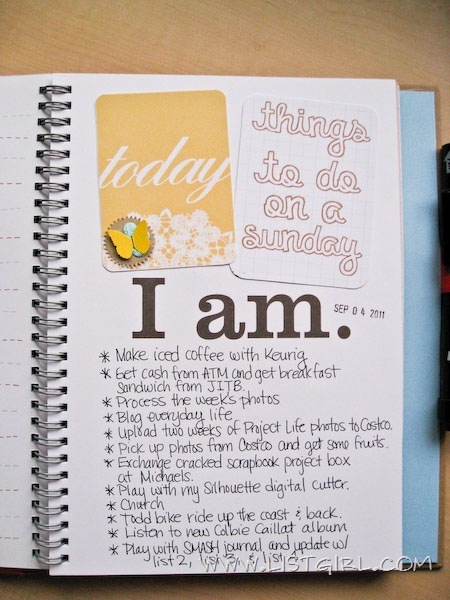 today
things
to do
on a
sunday
I am.
SEP 04 2011
* Make iced coffee with Keurig
* Get cash from ATM and get breakfast
sandwich from JITB.
* Process the week's photos
* Blog everyday life
* Upload two weeks of Project Life photos to Costco.
* Pick up photos from Costco and get some fruits.
* Exchange cracked scrapbook project box
at Michaels.
* Play with my Silhouette digital cutter.
* Church
* Todd bike ride up the coast & back.
* Listen to new Colbie Caillat album
* Play with SMASH journal and update w/
list 2, list 3, &
WWW.LISTGIRL.COM